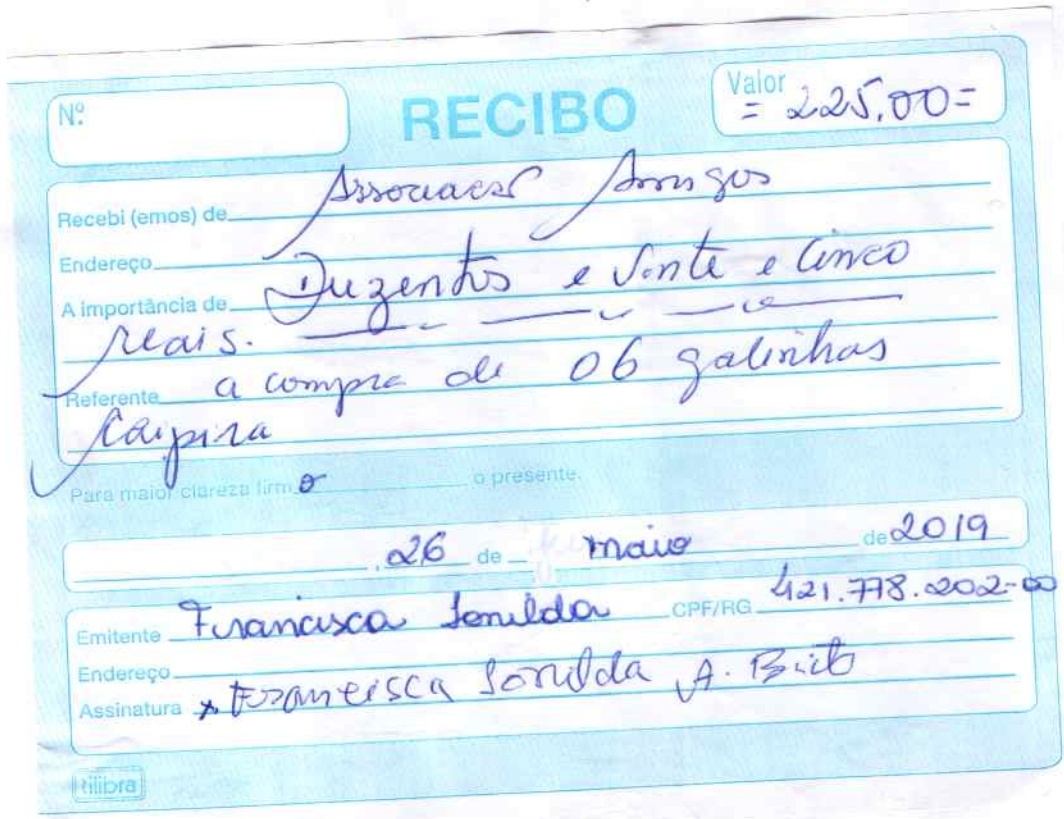 Nº
RECIBO
Valor
= 225,00=
Recebi (emos) de Associacao Amigos
Endereço
A importância de Duzentos e Vinte e Cinco
reais.
Referente a compra de 06 galinhas
Caipira
Para maior clareza firmo o presente.
26 de maio de 2019
Emitente Francisca CPF/RG 421.778.202-00
Endereço
Assinatura x Francisca A.
tilibra